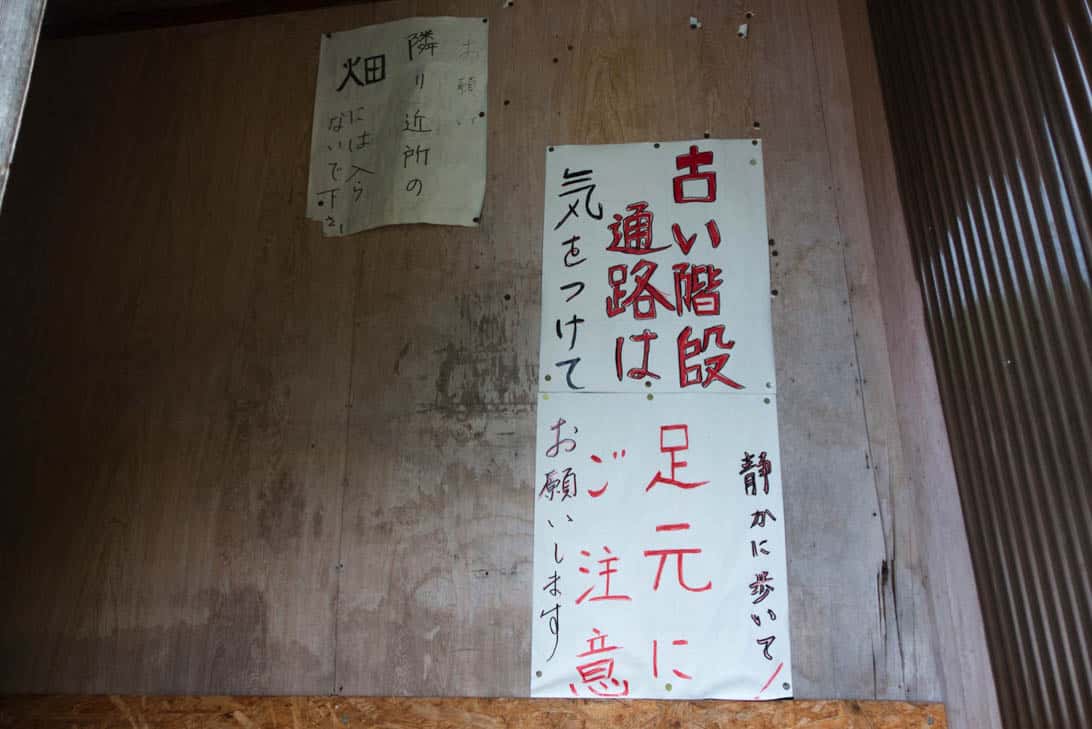 お願い
隣り近所の
畑
には入ら
ないで下さい
古い階段
通路は
気をつけて
静かに歩いて!
足元に
ご注意
お願いします